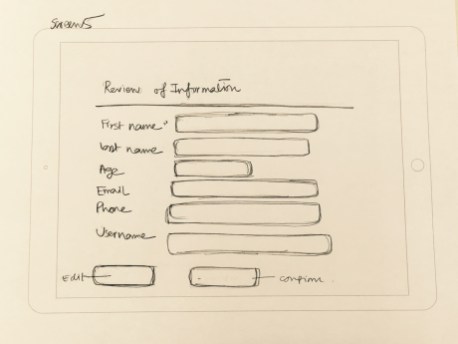 Screen 5
Review of Information
First name
last name
Age
Email
Phone
Username
Edit
confirm